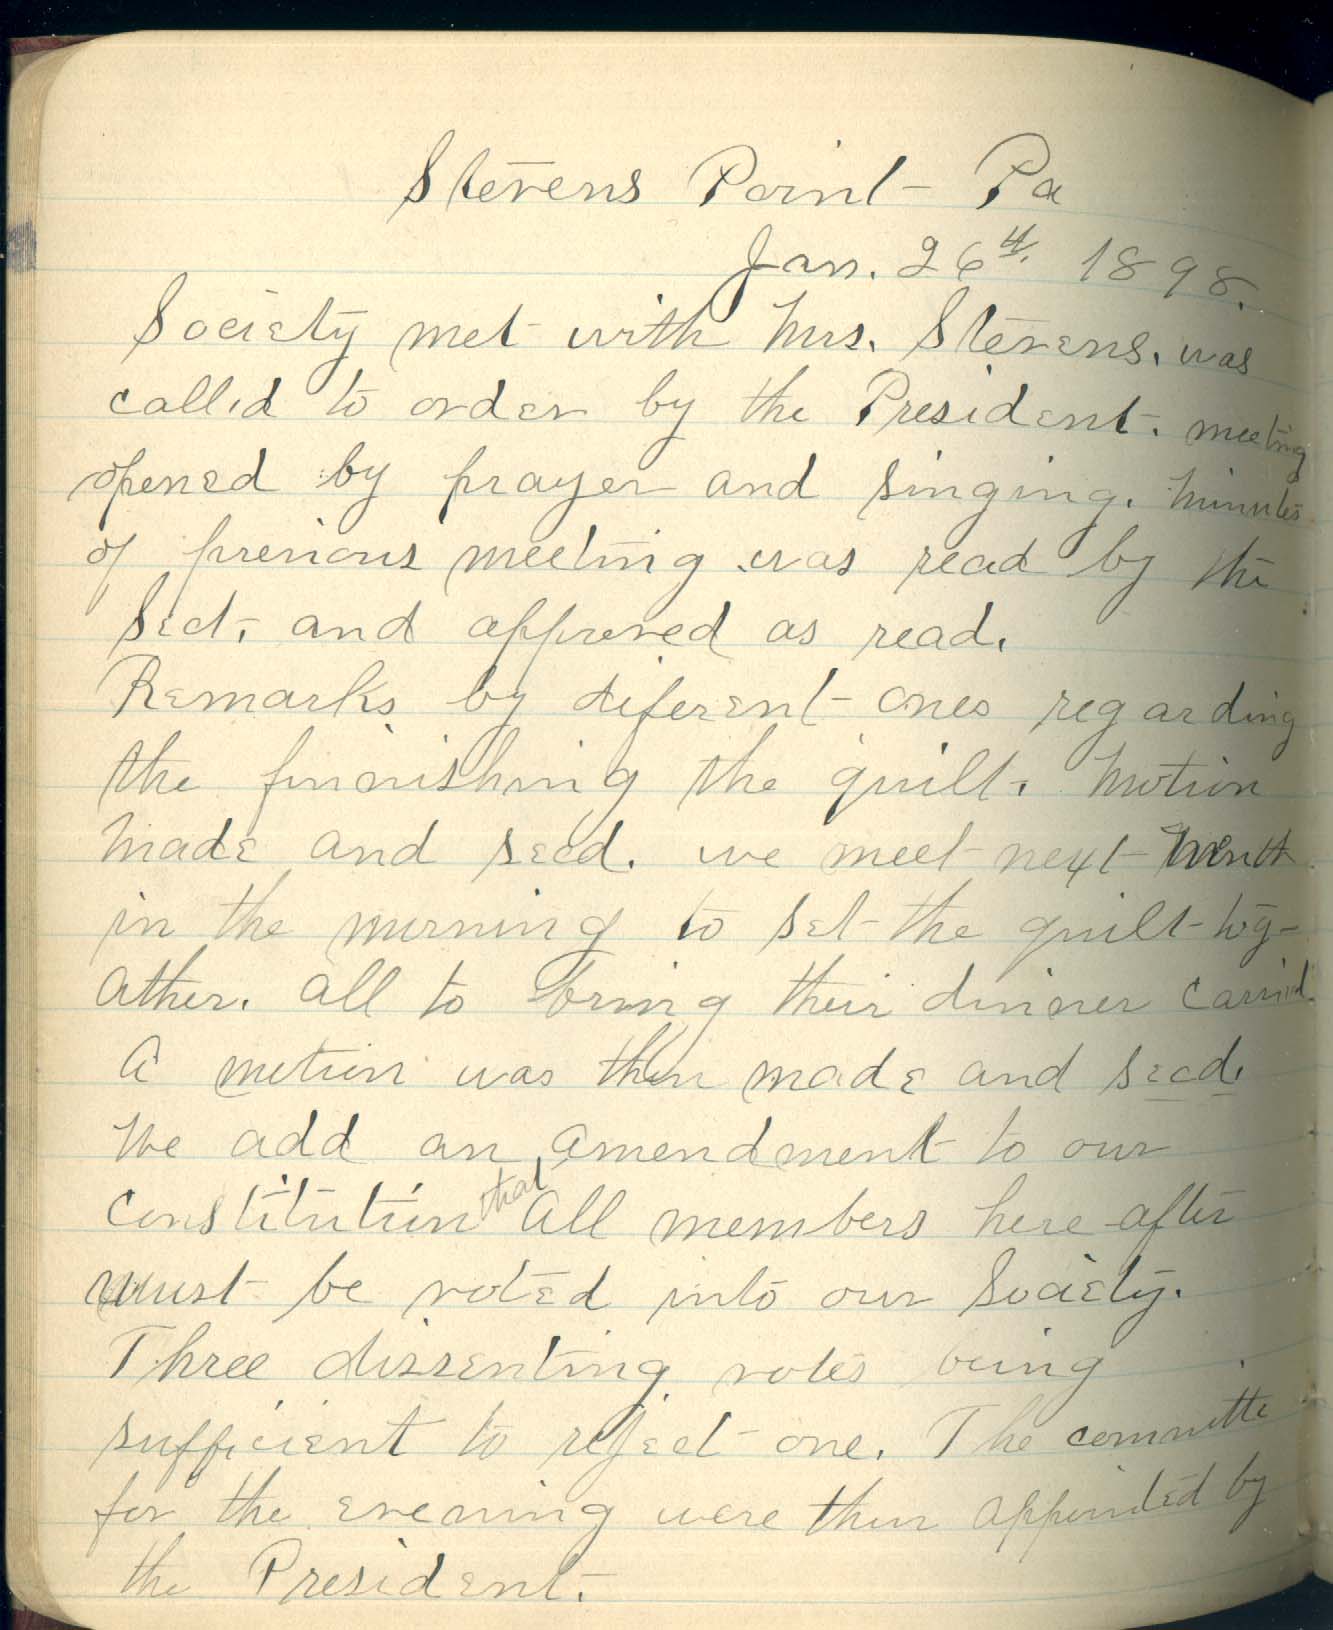 Stevens Point Pa
Jan. 26th. 1898.
Society met with Mrs. Stevens. was
called to order by the President. meeting
opened by prayer and singing. Minutes
of previous meeting was read by the
Sect. and approved as read.
Remarks by diferent ones regarding
the finnishing the quilt. Motion
made and secd. we meet next
in the morning to set the quilt tog-
ather. all to bring their dinner carried.
A motion was then made and secd.
We add an amendment to our
constitution that all members here after
must be voted into our Society.
Three dissenting votes being
sufficient to reject one. The committe
for the evening were then appointed by
the President.